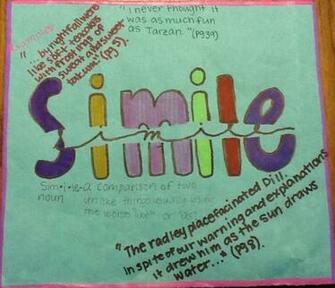 Examples
"...by nightfall were
like soft teacakes
with frostings of
sweat and sweet
talcum." (pg 5).
"I never thought it
was as much fun
as Tarzan." (pg 39)
Simile
simile
Sim•i•le - a comparison of two
noun
unlike things usually using
the words "like" or "as"
"The radley place facinated Dill.
In spite of our warning and explanations
it drew him as the sun draws
water..." (pg 8).